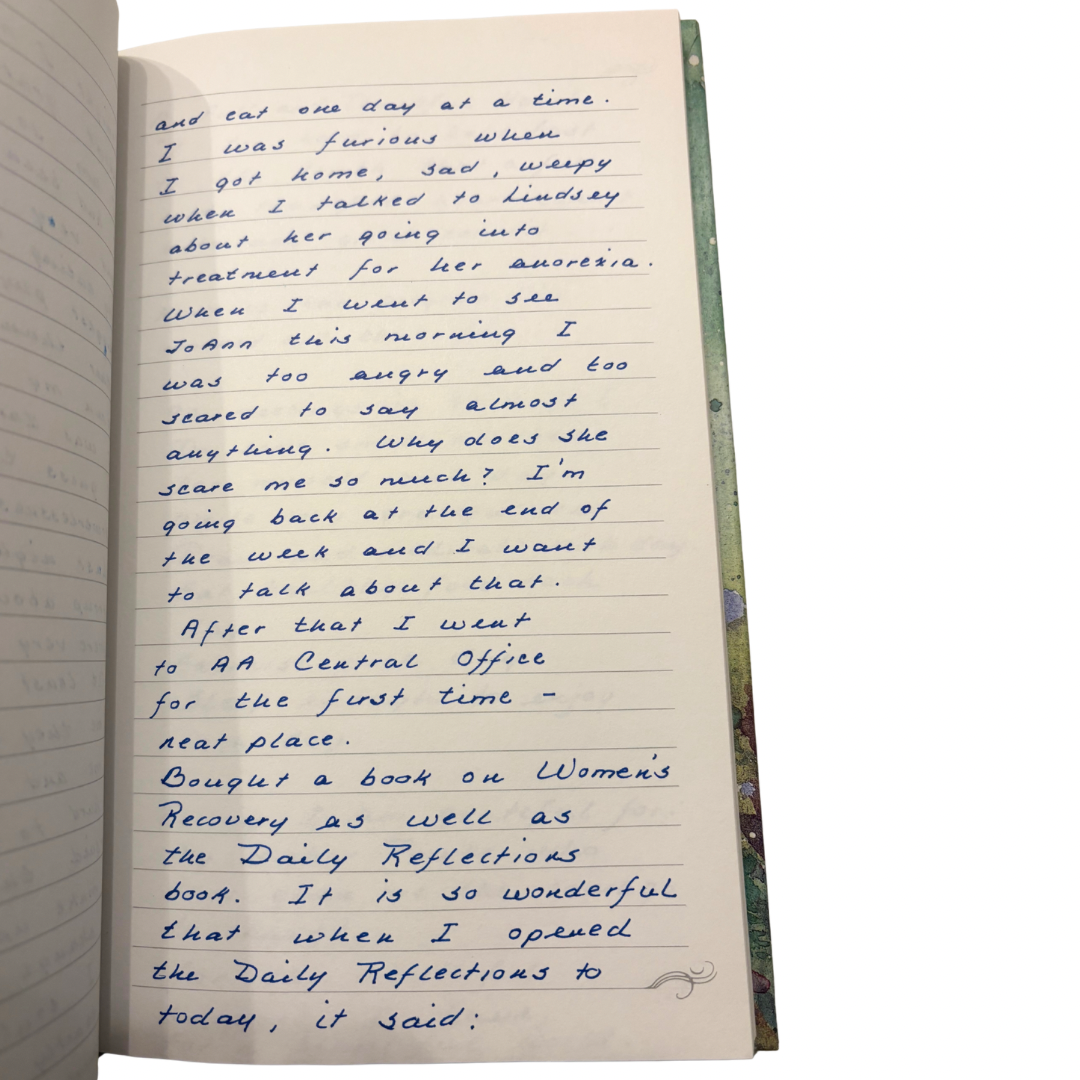 and eat one day at a time.
I was furious when
I got home, sad, weepy
when I talked to Lindsey
about her going into
treatment for her anorexia.
When I went to see
JoAnn this morning I
was too angry and too
scared to say almost
anything. Why does she
scare me so much? I'm
going back at the end of
the week and I want
to talk about that.
After that I went
to AA Central Office
for the first time -
neat place.
Bought a book on Women's
Recovery as well as
the Daily Reflections
book. It is so wonderful
that when I opened
the Daily Reflections to
today, it said: